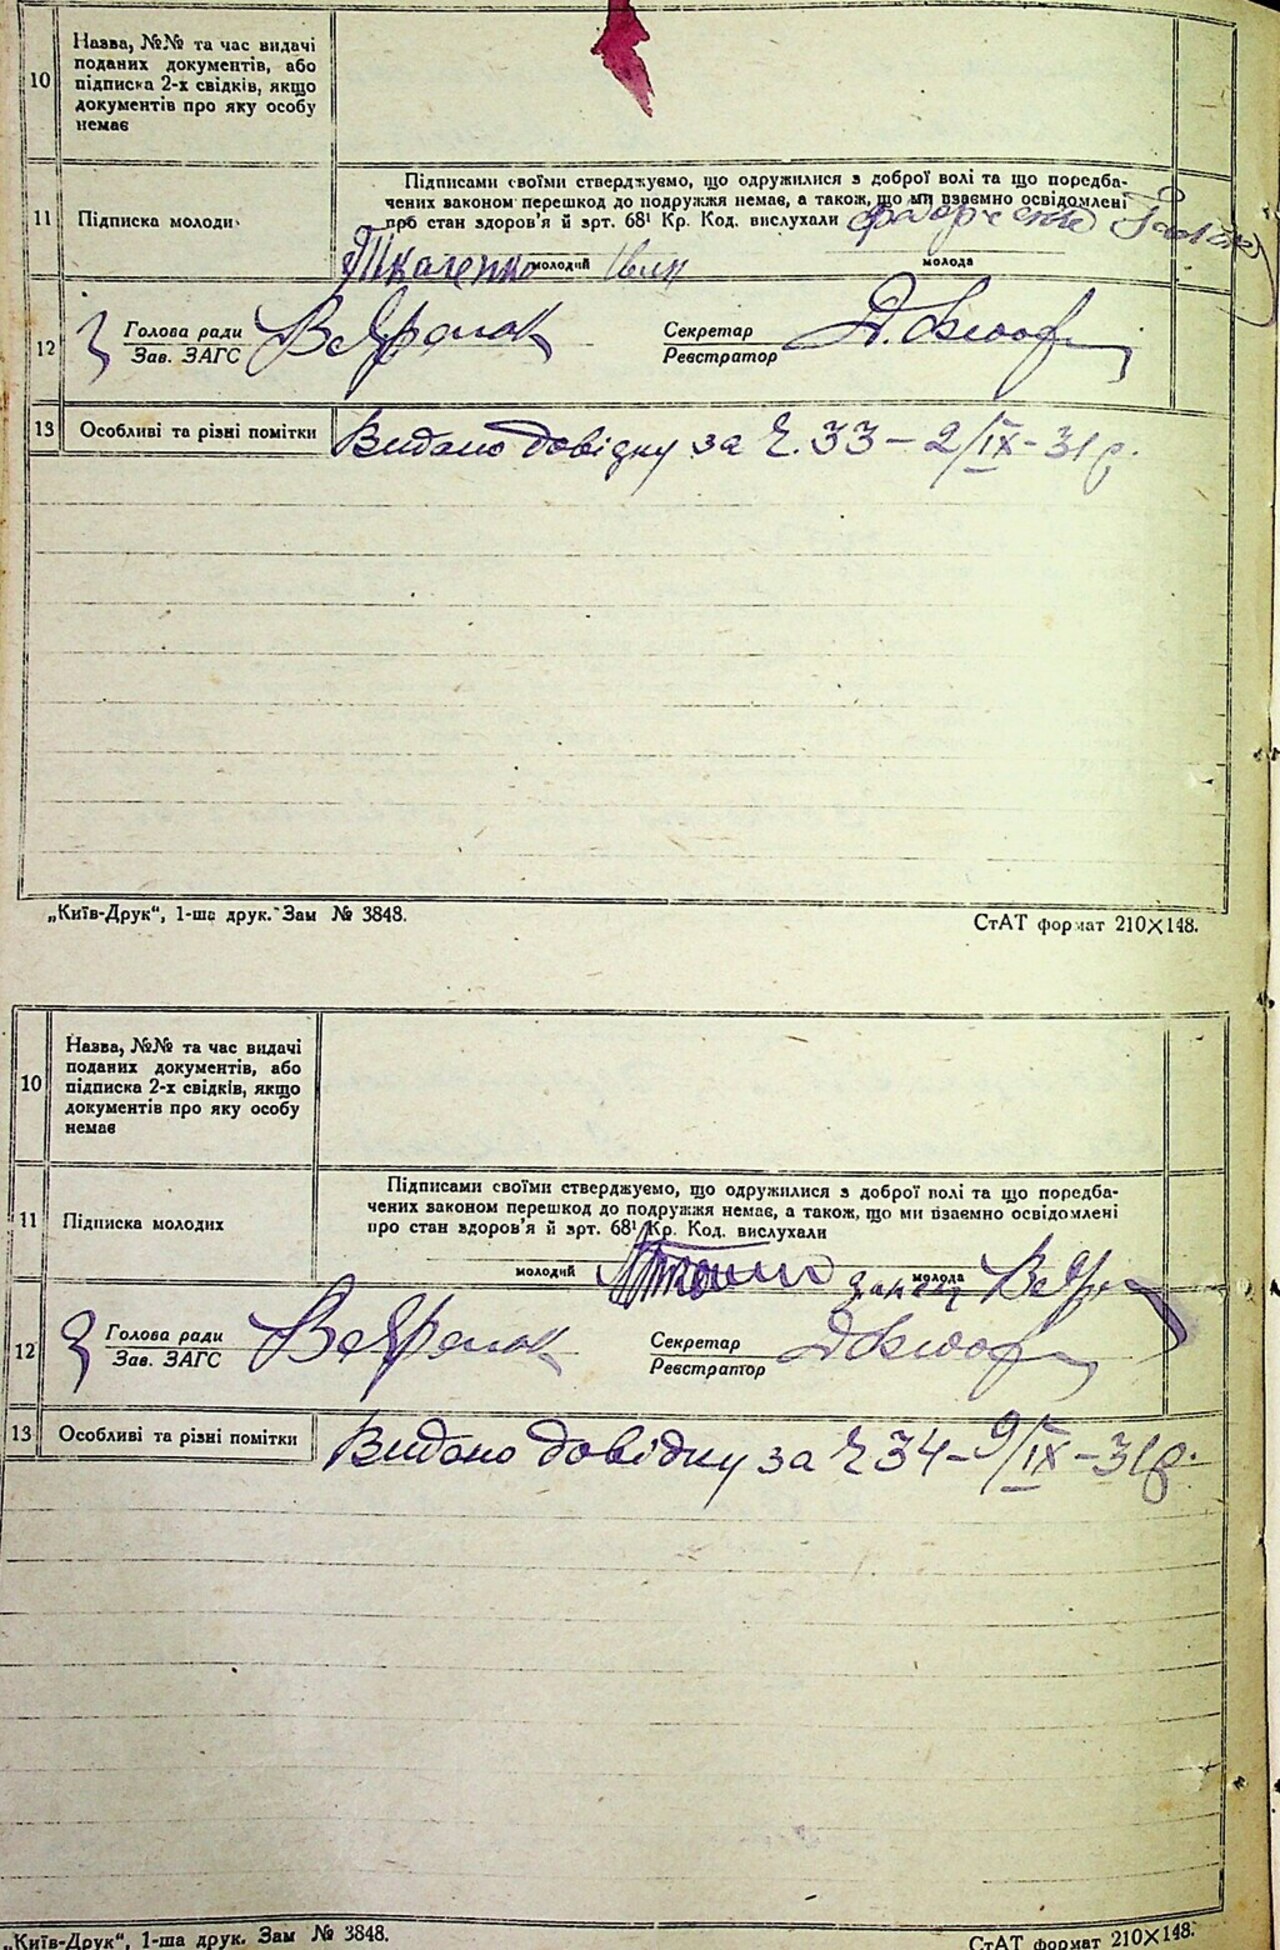 10
Назва, №№ та час видачі
поданих документів, або
підписка 2-х свідків, якщо
документів про яку особу
немає
11
Підписка молоди
Підписами своїми стверджуємо, що одружилися з доброї волі та що передба-
чених законом перешкод до подружжя немає, а також, що ми взаємно освідомлені
про стан здоров'я й зрт. 68¹ Кр. Код. вислухали
Ткаченко молодий Іван
молода
12
Голова ради
Зав. ЗАГС
Секретар
Реєстратор
13
Особливі та різні помітки
Видано довідку за Ч. 33 – 2/IX – 31 р.
„Київ-Друк“, 1-ша друк. Зам № 3848.
СтАТ формат 210×148.
10
Назва, №№ та час видачі
поданих документів, або
підписка 2-х свідків, якщо
документів про яку особу
немає
11
Підписка молодих
Підписами своїми стверджуємо, що одружилися з доброї волі та що передба-
чених законом перешкод до подружжя немає, а також, що ми взаємно освідомлені
про стан здоров'я й зрт. 68¹ Кр. Код. вислухали
молодий
молода
12
Голова ради
Зав. ЗАГС
Секретар
Реєстратор
13
Особливі та різні помітки
Видано довідку за Ч 34 – 9/IX – 31 р.
„Київ-Друк“, 1-ша друк. Зам № 3848.
СтАТ формат 210×148.